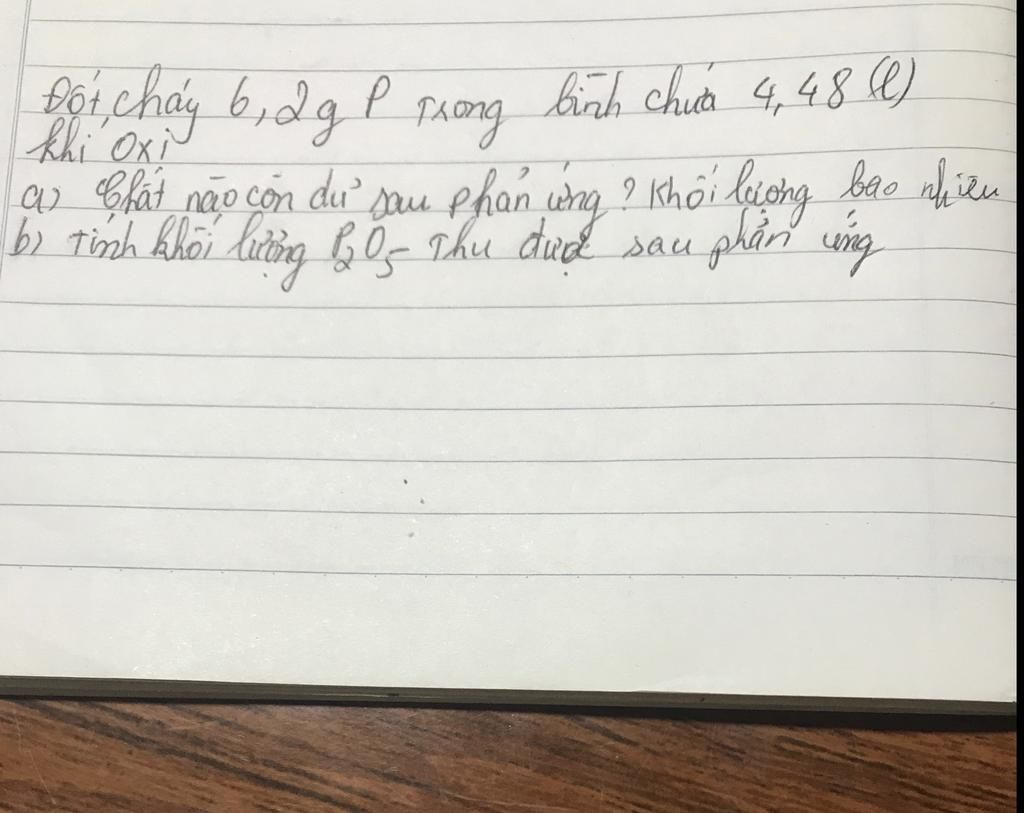 Đốt cháy 6,2g P Trong bình chứa 4,48 (l)
khí Oxi
a) Chất nào còn dư sau phản ứng? Khối lượng bao nhiêu
b) Tính khối lượng P₂O₅ Thu được sau phản ứng